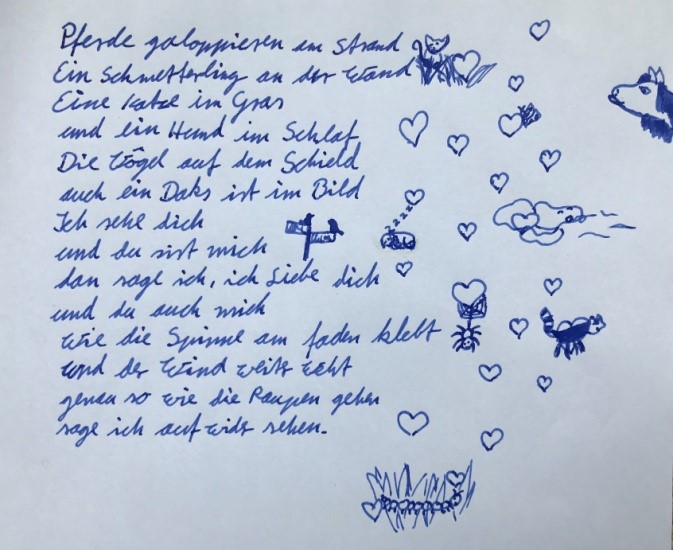 Pferde galoppieren am Strand
Ein Schmetterling an der Wand
Eine Katze im Gras
und ein Hund im Schlaf
Die Vögel auf dem Schield
auch ein Daks ist im Bild
Ich sehe dich
und du sist mich
dan sage ich, ich Liebe dich
und du auch mich
wie die Spinne am faden klebt
und der Wind weiter weht
genau so wie die Raupen gehen
sage ich auf wider sehen.
zzzz